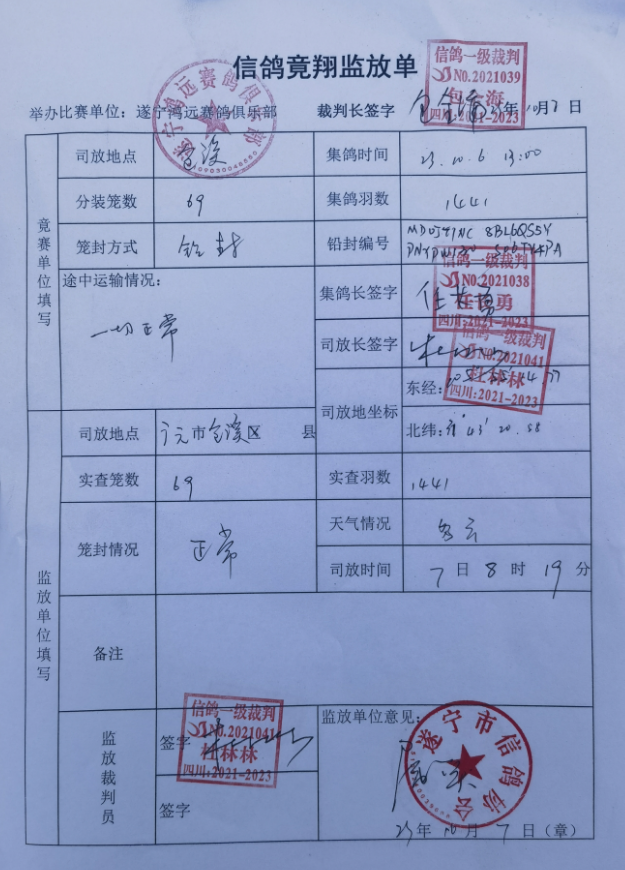 信鸽竞翔监放单
信鸽一级裁判
NO.2021039
四川:2021-2023
举办比赛单位：遂宁鸿远赛鸽俱乐部 裁判长签字 23年10月7日
遂宁鸿远赛鸽俱乐部
竞赛单位填写
司放地点 集鸽时间 23.10.6 13:00
分装笼数 69 集鸽羽数 1441
笼封方式 铅封 铅封编号
途中运输情况：
一切正常
集鸽长签字
信鸽一级裁判
NO.2021038
任 勇
四川:2021-2023
司放长签字
信鸽一级裁判
NO.2021041
杜林林
四川:2021-2023
司放地坐标 东经:
北纬: 43' 20.58
监放单位填写
司放地点 广元市 区 县
实查笼数 69 实查羽数 1441
笼封情况 正常 天气情况 多云
司放时间 7日8时19分
备注
监放裁判员
签字
信鸽一级裁判
NO.2021041
杜林林
四川:2021-2023
签字
监放单位意见：
遂宁市信鸽协会
属实
23年10月7日（章）